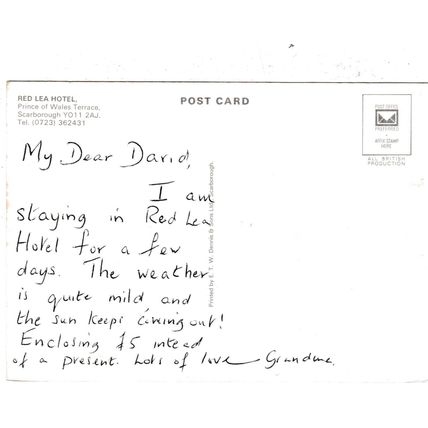 RED LEA HOTEL,
Prince of Wales Terrace,
Scarborough YO11 2AJ.
Tel. (0723) 362431
POST CARD
POST OFFICE
PREFERRED
AFFIX STAMP
HERE
ALL BRITISH
PRODUCTION
My Dear David,
I am
staying in Red Lea
Hotel for a few
days. The weather
is quite mild and
the sun keeps coming out!
Enclosing £5 intead
of a present. Lots of love Grandma.
Printed by E. T. W. Dennis & Sons Ltd., Scarborough.